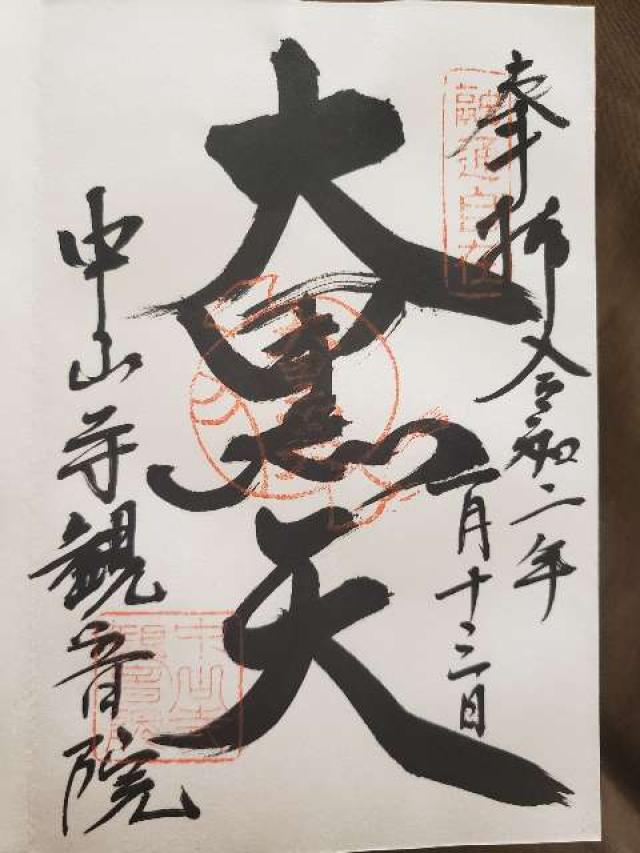 奉拝 令和二年
一月十三日
融通自在
大黒天
中山寺観音院
中山寺
観音院